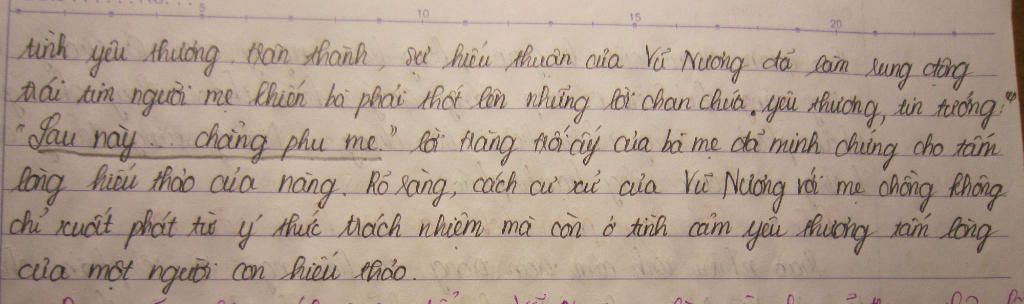 5 10 15 20
tình yêu thương chân thành, sự hiếu thuận của Vũ Nương đã làm rung động
trái tim người mẹ khiến bà phải thốt lên những lời chan chứa yêu thương, tin tưởng:
"Sau này ... chẳng phụ mẹ." lời trăng trối của bà mẹ đã minh chứng cho tấm
lòng hiếu thảo của nàng. Rõ ràng, cách cư xử của Vũ Nương với mẹ chồng không
chỉ xuất phát từ ý thức trách nhiệm mà còn ở tình cảm yêu thương tấm lòng
của một người con hiếu thảo.